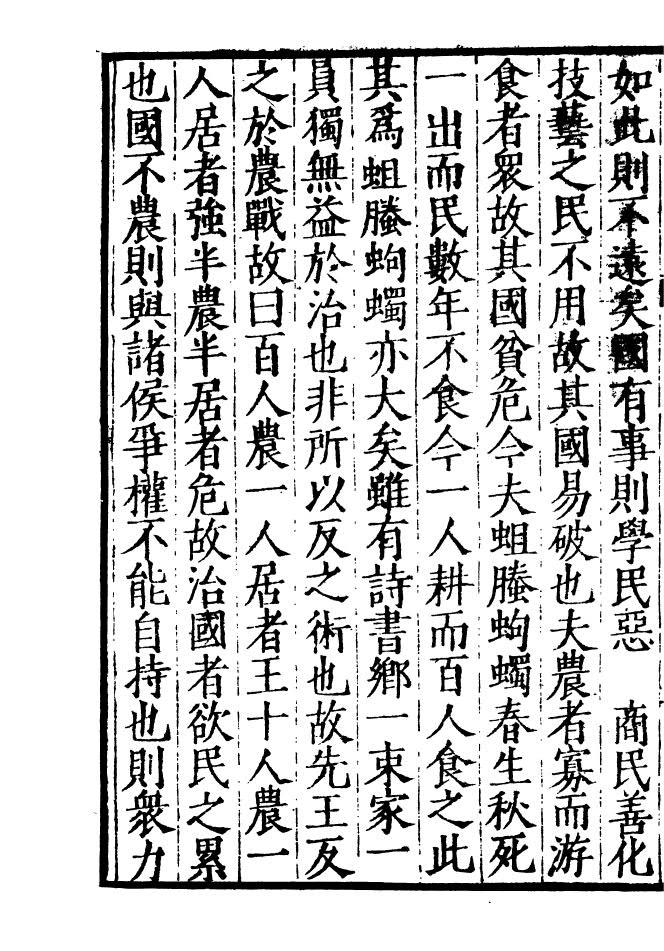 如此則不遠矣國有事則學民惡　商民善化
技藝之民不用故其國易破也夫農者寡而游
食者衆故其國貧危今夫蛆螣蚼蠋春生秋死
一出而民數年不食今一人耕而百人食之此
其爲蛆螣蚼蠋亦大矣雖有詩書鄉一束家一
員獨無益於治也非所以反之術也故先王反
之於農戰故曰百人農一人居者王十人農一
人居者強半農半居者危故治國者欲民之累
也國不農則與諸侯爭權不能自持也則衆力